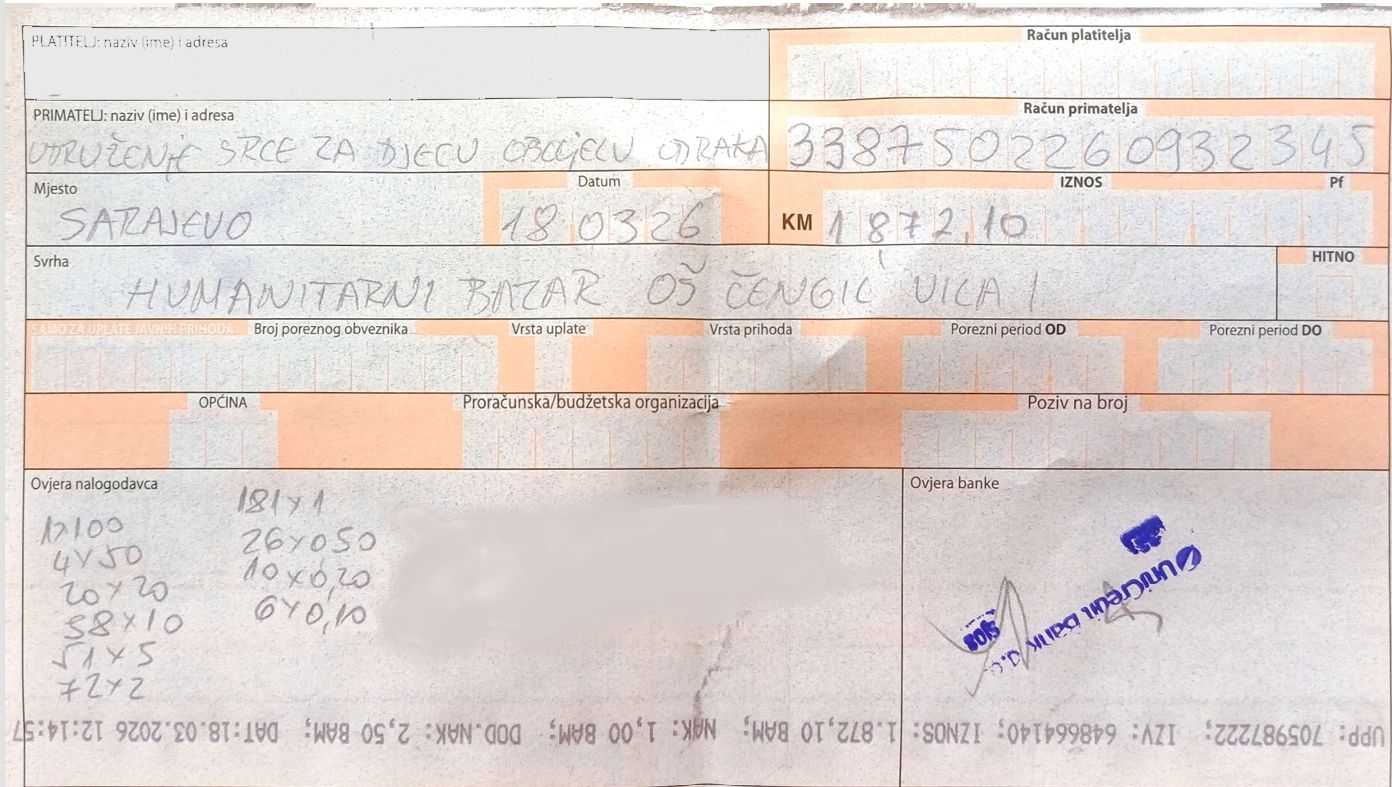 PLATITELJ: naziv (ime) i adresa
Račun platitelja
PRIMATELJ: naziv (ime) i adresa
Račun primatelja
UDRUŽENJE SRCE ZA DJECU OBOLJELU OD RAKA
3387502260932345
Mjesto
Datum
IZNOS
Pf
SARAJEVO
180326
KM
1872,10
Svrha
HITNO
HUMANITARNI BAZAR OŠ ČENGIĆ VILA I
SAMO ZA UPLATE JAVNIH PRIHODA
Broj poreznog obveznika
Vrsta uplate
Vrsta prihoda
Porezni period OD
Porezni period DO
OPĆINA
Proračunska/budžetska organizacija
Poziv na broj
Ovjera nalogodavca
1x100
4x50
20x20
58x10
51x5
72x2
181x1
26x050
10x0,20
6x0,10
Ovjera banke
UniCredit bank d.d.
UPP: 705987222; IZV: 648664140; IZNOS: 1.872,10 BAM; NAK: 1,00 BAM; DOD.NAK: 2,50 BAM; DAT:18.03.2026 12:14:57